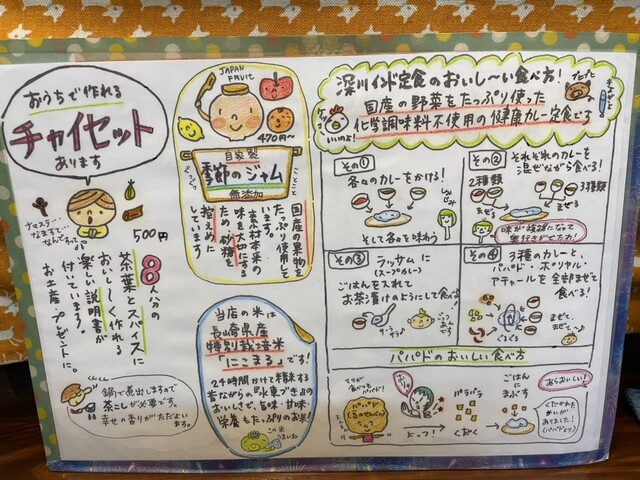 おうちで作れる
チャイセット
あります
ナマステ…
なますて…
なんですって
500円
8人分の
茶葉とスパイスに
おいし〜く作れる
楽しい説明書が
付いています。
お土産・プレゼントに。
くんくん
鍋で煮出しますので
茶こしが必要です。
幸せの香りがただよい
ます。
JAPAN
FRUIT
470円〜
自家製
季節のジャム
無添加
ぐつぐつ
ことこと
国産の果物を
たっぷり使用して
います。
素材本来の
味を大切にする
ため、砂糖を
控えめに
しています
当店の米は
長崎県産
特別栽培米
「にこまる」です!
24時間かけて精米する
昔ながらの『水車づき』の
おいしさで、旨味・甘味
栄養もたっぷりのお米。
この米
うまいね
深川インド定食のおいし〜い食べ方!
国産の野菜をたっぷり使った
化学調味料不使用の健康カレー定食です
いいのよ!
その①
各々のカレーをかける!
そして各々味わう
その②
それぞれのカレーを
混ぜながら食べる!
2種類
3種類
まぜる
まぜる
味が複雑になって
奥行きがでた力!
その③
ラッサムに
(スープカレー)
ごはんを入れて
お茶漬けのようにして食べる
サラサラ♪
その④
3種のカレーと、
パパド・ポリヤル、
アチャールを全部まぜて
食べる!
ぐるぐる
まぜて、
まぜて〜♪
パパドのおいしい食べ方
ママが
食べてもパパド!
パパド
おっつ!
パラパラ
くだく
ごはんに
まぶす
あらおいしい!
くだかれた
かいが
ありました!
(パパドより)